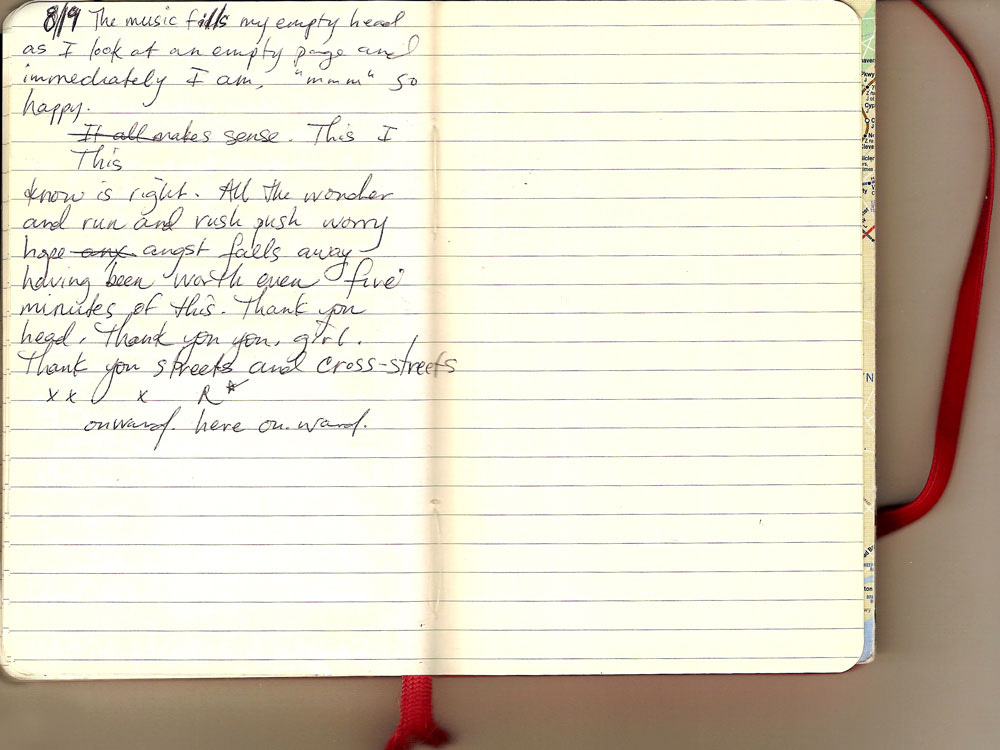 8/9 The music fills my empty head
as I look at an empty page and
immediately I am, "mmm" so
happy.
It all makes sense. This I
This
know is right. All the wonder
and run and rush push worry
hope any angst falls away
having been worth even five
minutes of this. Thank you
head. Thank you you, girl.
Thank you streets and cross-streets
x x x R*
onward. here on.ward.